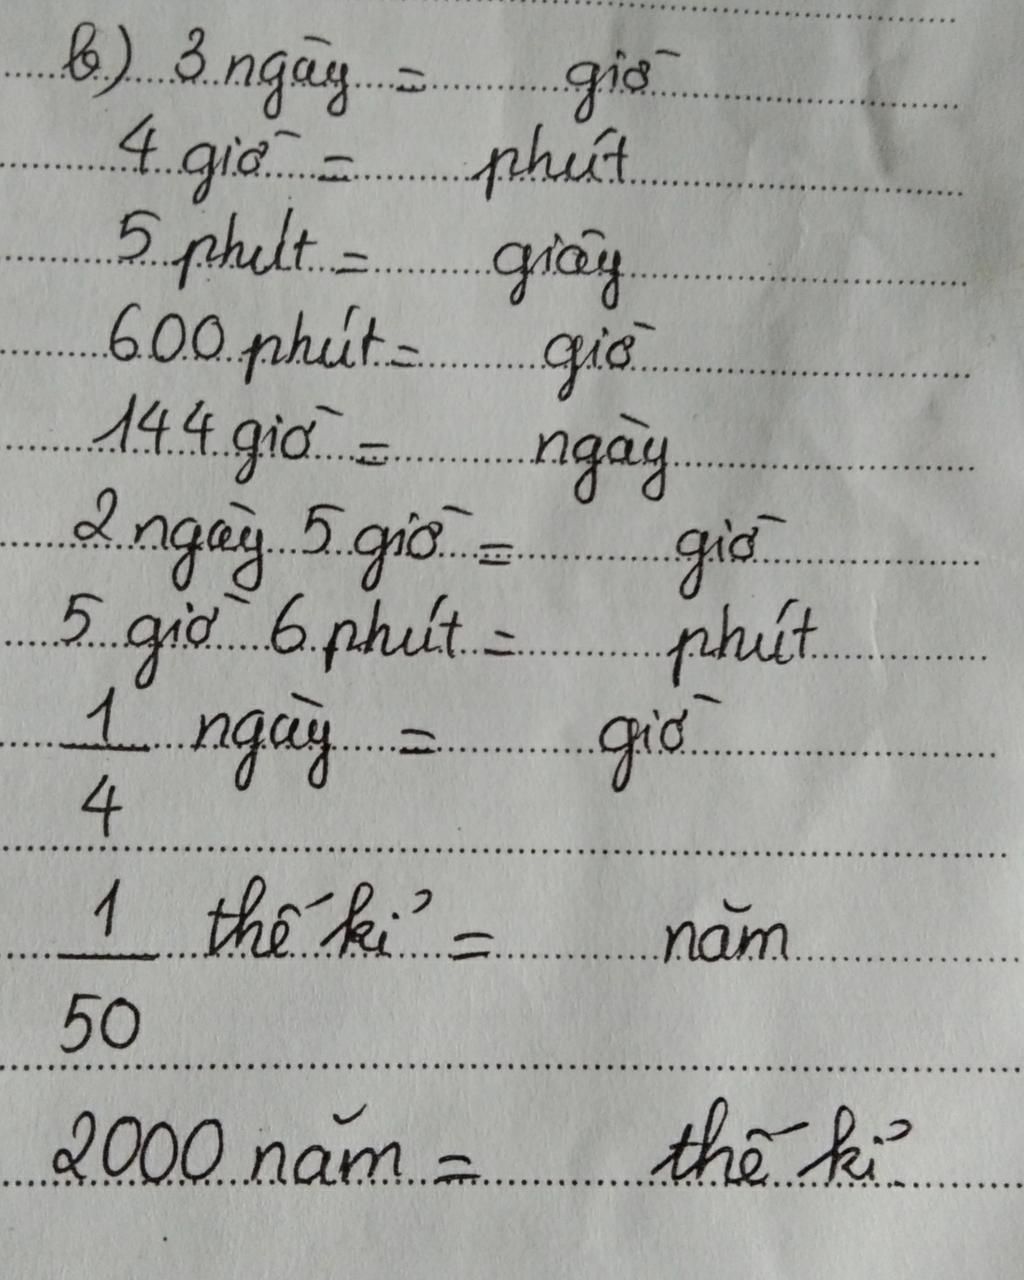 b) 3 ngày = giờ
4 giờ = phút
5 phút = giây
600 phút = giờ
144 giờ = ngày
2 ngày 5 giờ = giờ
5 giờ 6 phút = phút
1/4 ngày = giờ
1/50 thế kỉ = năm
2000 năm = thế kỉ